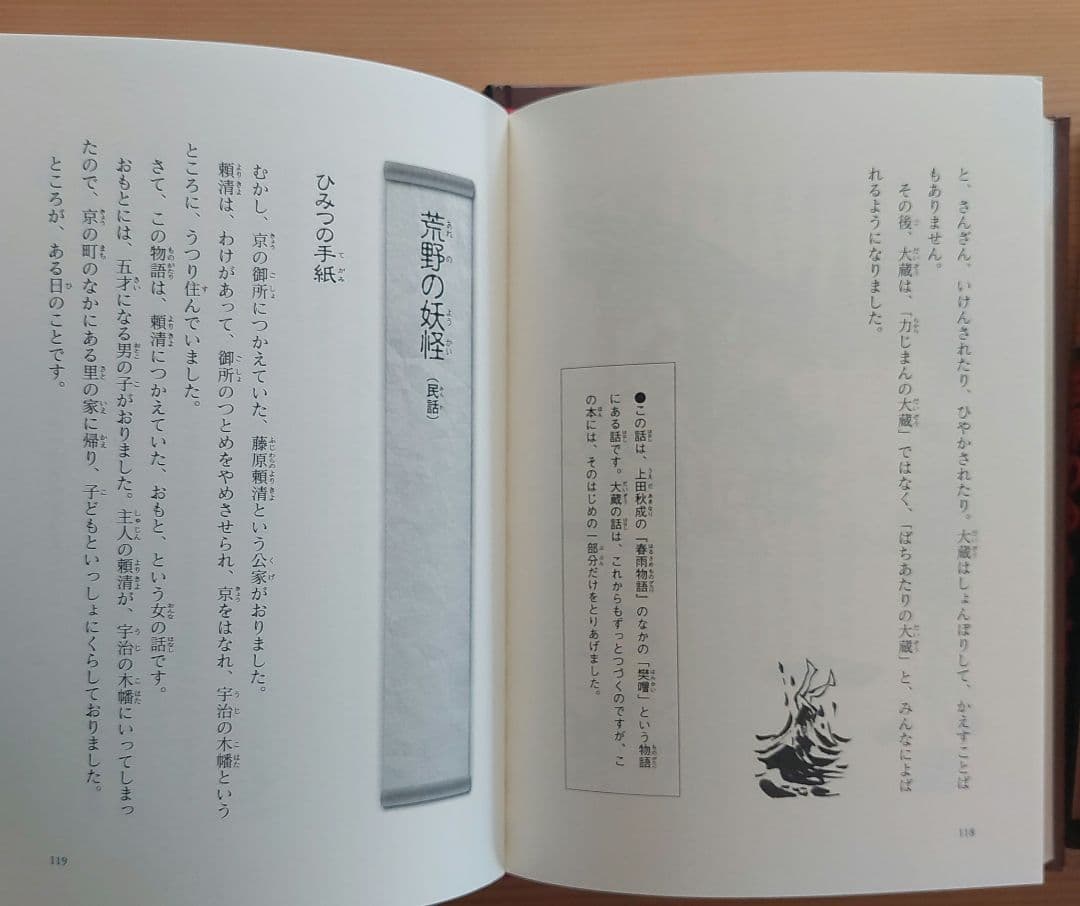 と、さんざん、いけんされたり、ひやかされたり。大蔵はしょんぼりして、かえすことば
もありません。
その後、大蔵は、「力じまんの大蔵」ではなく、「ばちあたりの大蔵」と、みんなによば
れるようになりました。
●この話は、上田秋成の『春雨物語』のなかの「樊噲」という物語
にある話です。大蔵の話は、これからもずっとつづくのですが、こ
の本には、そのはじめの一部分だけをとりあげました。
118
荒野の妖怪(民話)
ひみつの手紙
むかし、京の御所につかえていた、藤原頼清という公家がおりました。
頼清は、わけがあって、御所のつとめをやめさせられ、京をはなれ、宇治の木幡という
ところに、うつり住んでいました。
さて、この物語は、頼清につかえていた、おもと、という女の話です。
おもとには、五才になる男の子がおりました。主人の頼清が、宇治の木幡にいってしまっ
たので、京の町のなかにある里の家に帰り、子どもといっしょにくらしておりました。
ところが、ある日のことです。
119